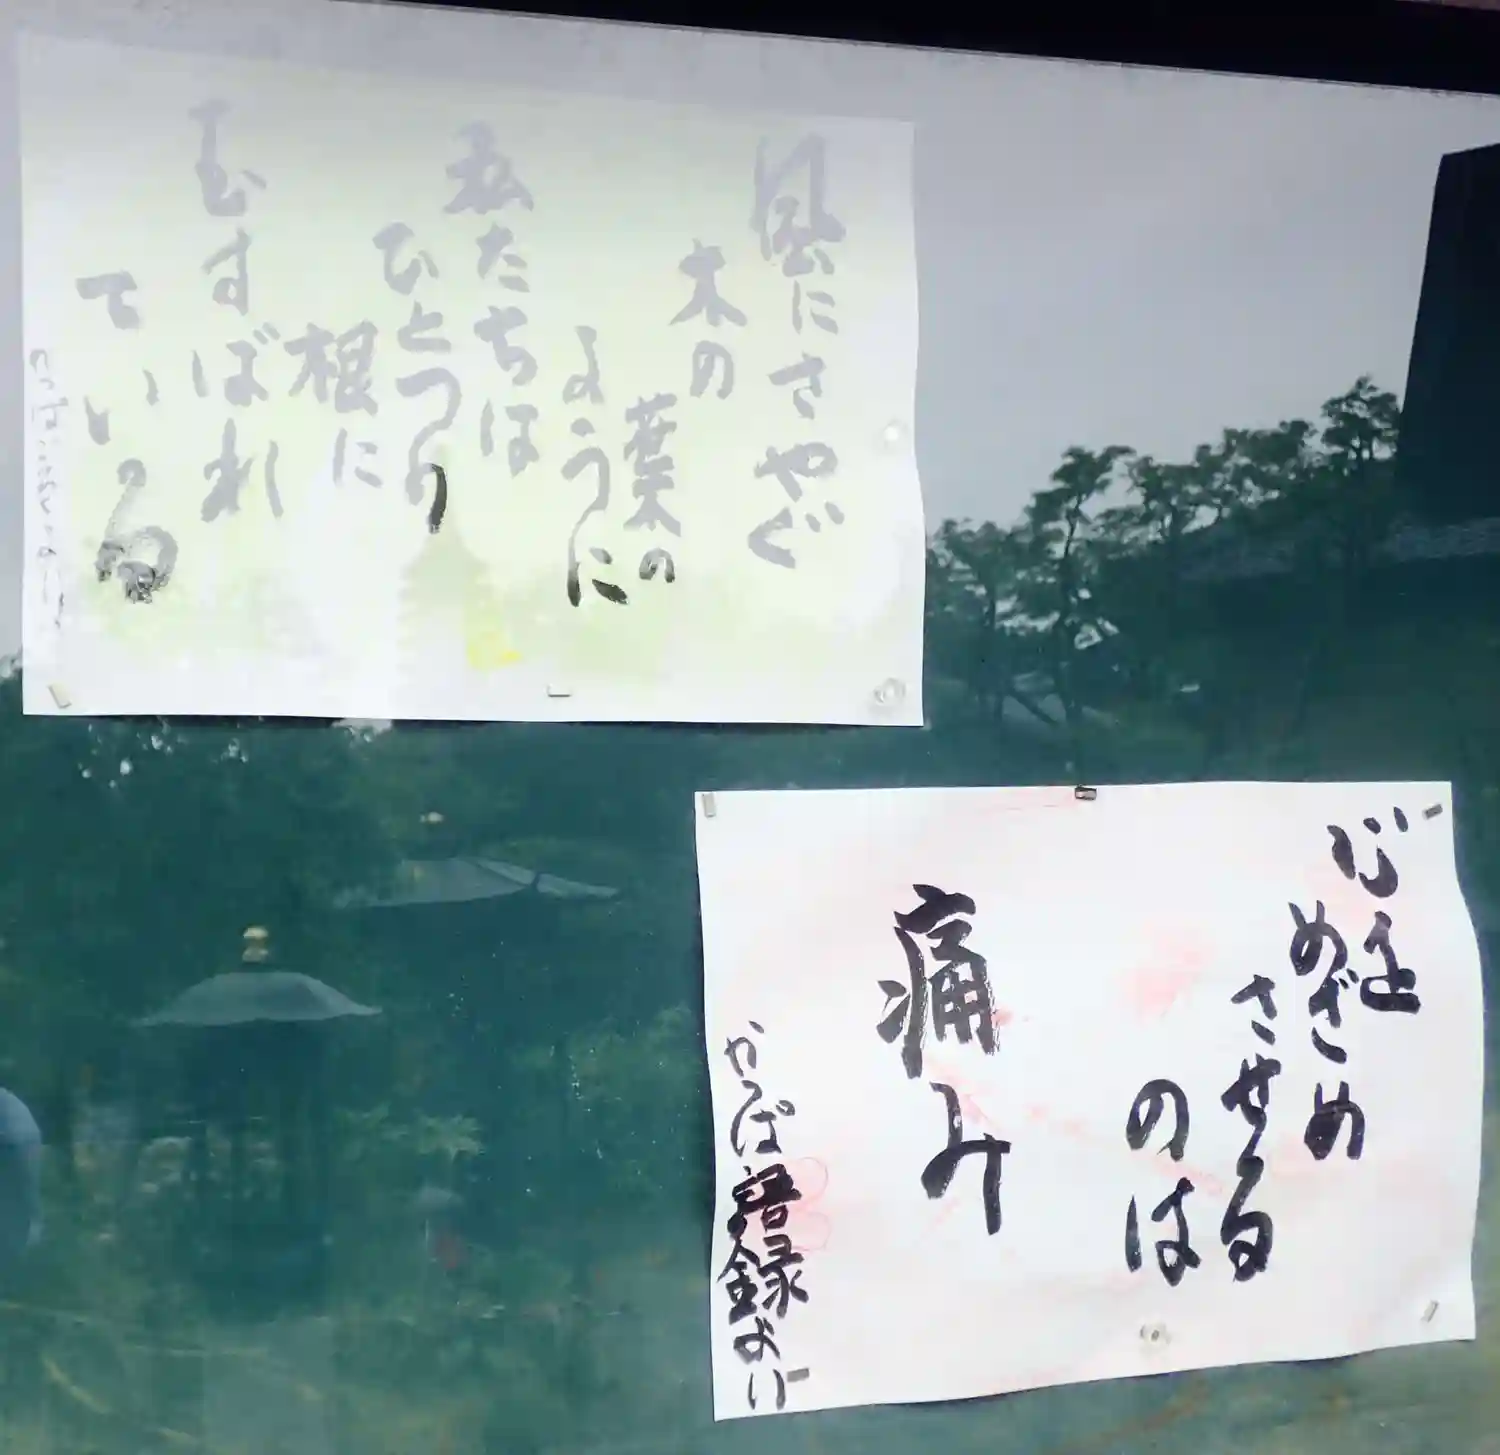 風にさやぐ
木の
葉の
ように
私たちは
ひとつの
根に
むすばれ
ている
心を
めざめ
させる
のは
痛み
かっぱ語録より